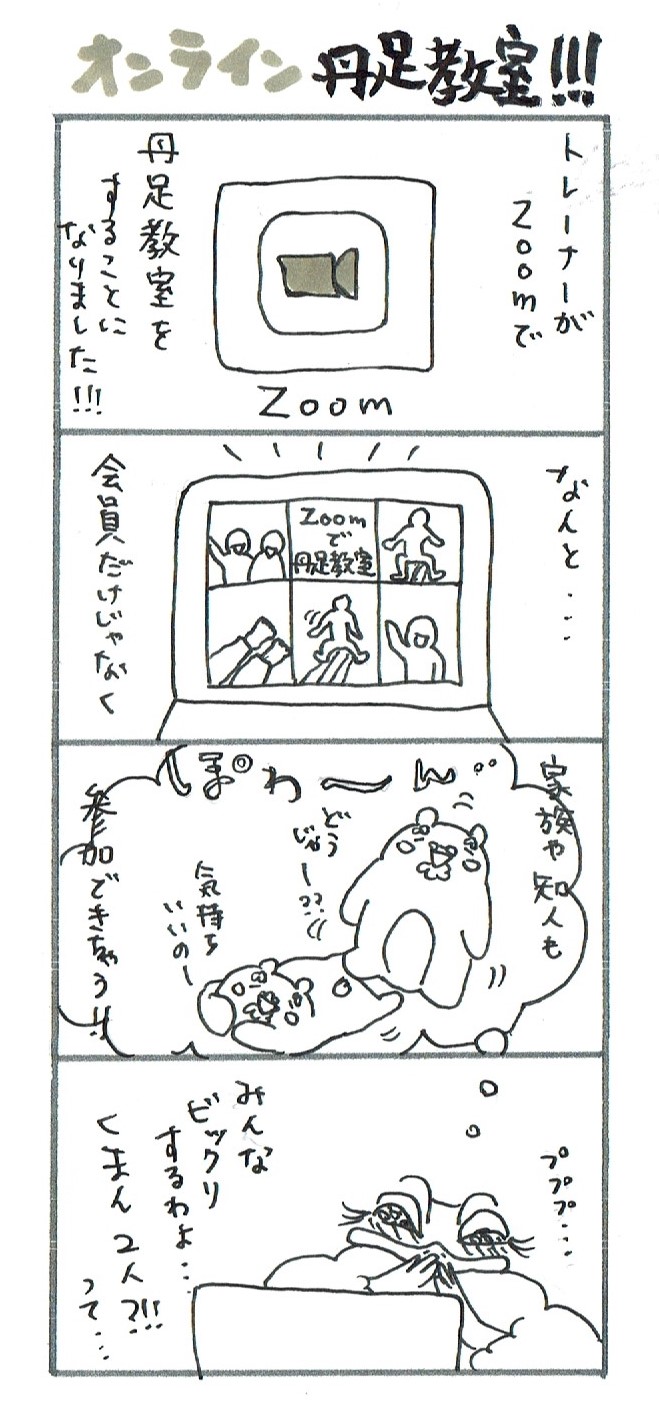 オンライン丹足教室!!!
トレーナーが
Zoomで
Zoom
丹足教室を
することに
なりました!!!
なんと・・・
Zoom
で
丹足教室
会員だけじゃなく
ぽわ〜ん
家族や知人も
どう
じゃー??
気持ち
いいのー
参加できちゃう!!
ププププ・・・
みんな
ビックリ
するわよ・・
くまん2人?!!
って・・・